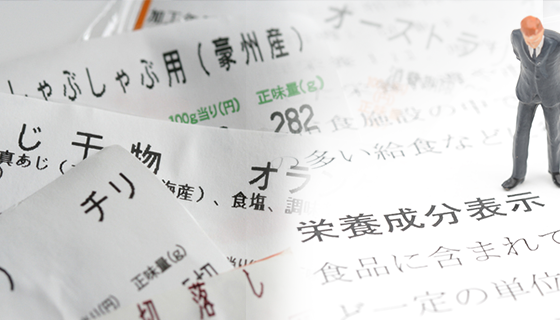 加工年
しゃぶしゃぶ用(豪州産)
100g当り(円) 正味量(g)
282
じ 干 物
真あじ(
海産)、食塩、調
オラ
チリ
正味量(g)
切 落 し
オーストラ
食施設の中
多い給食など
栄養成分表示
食品に含まれて
ど一定の単位